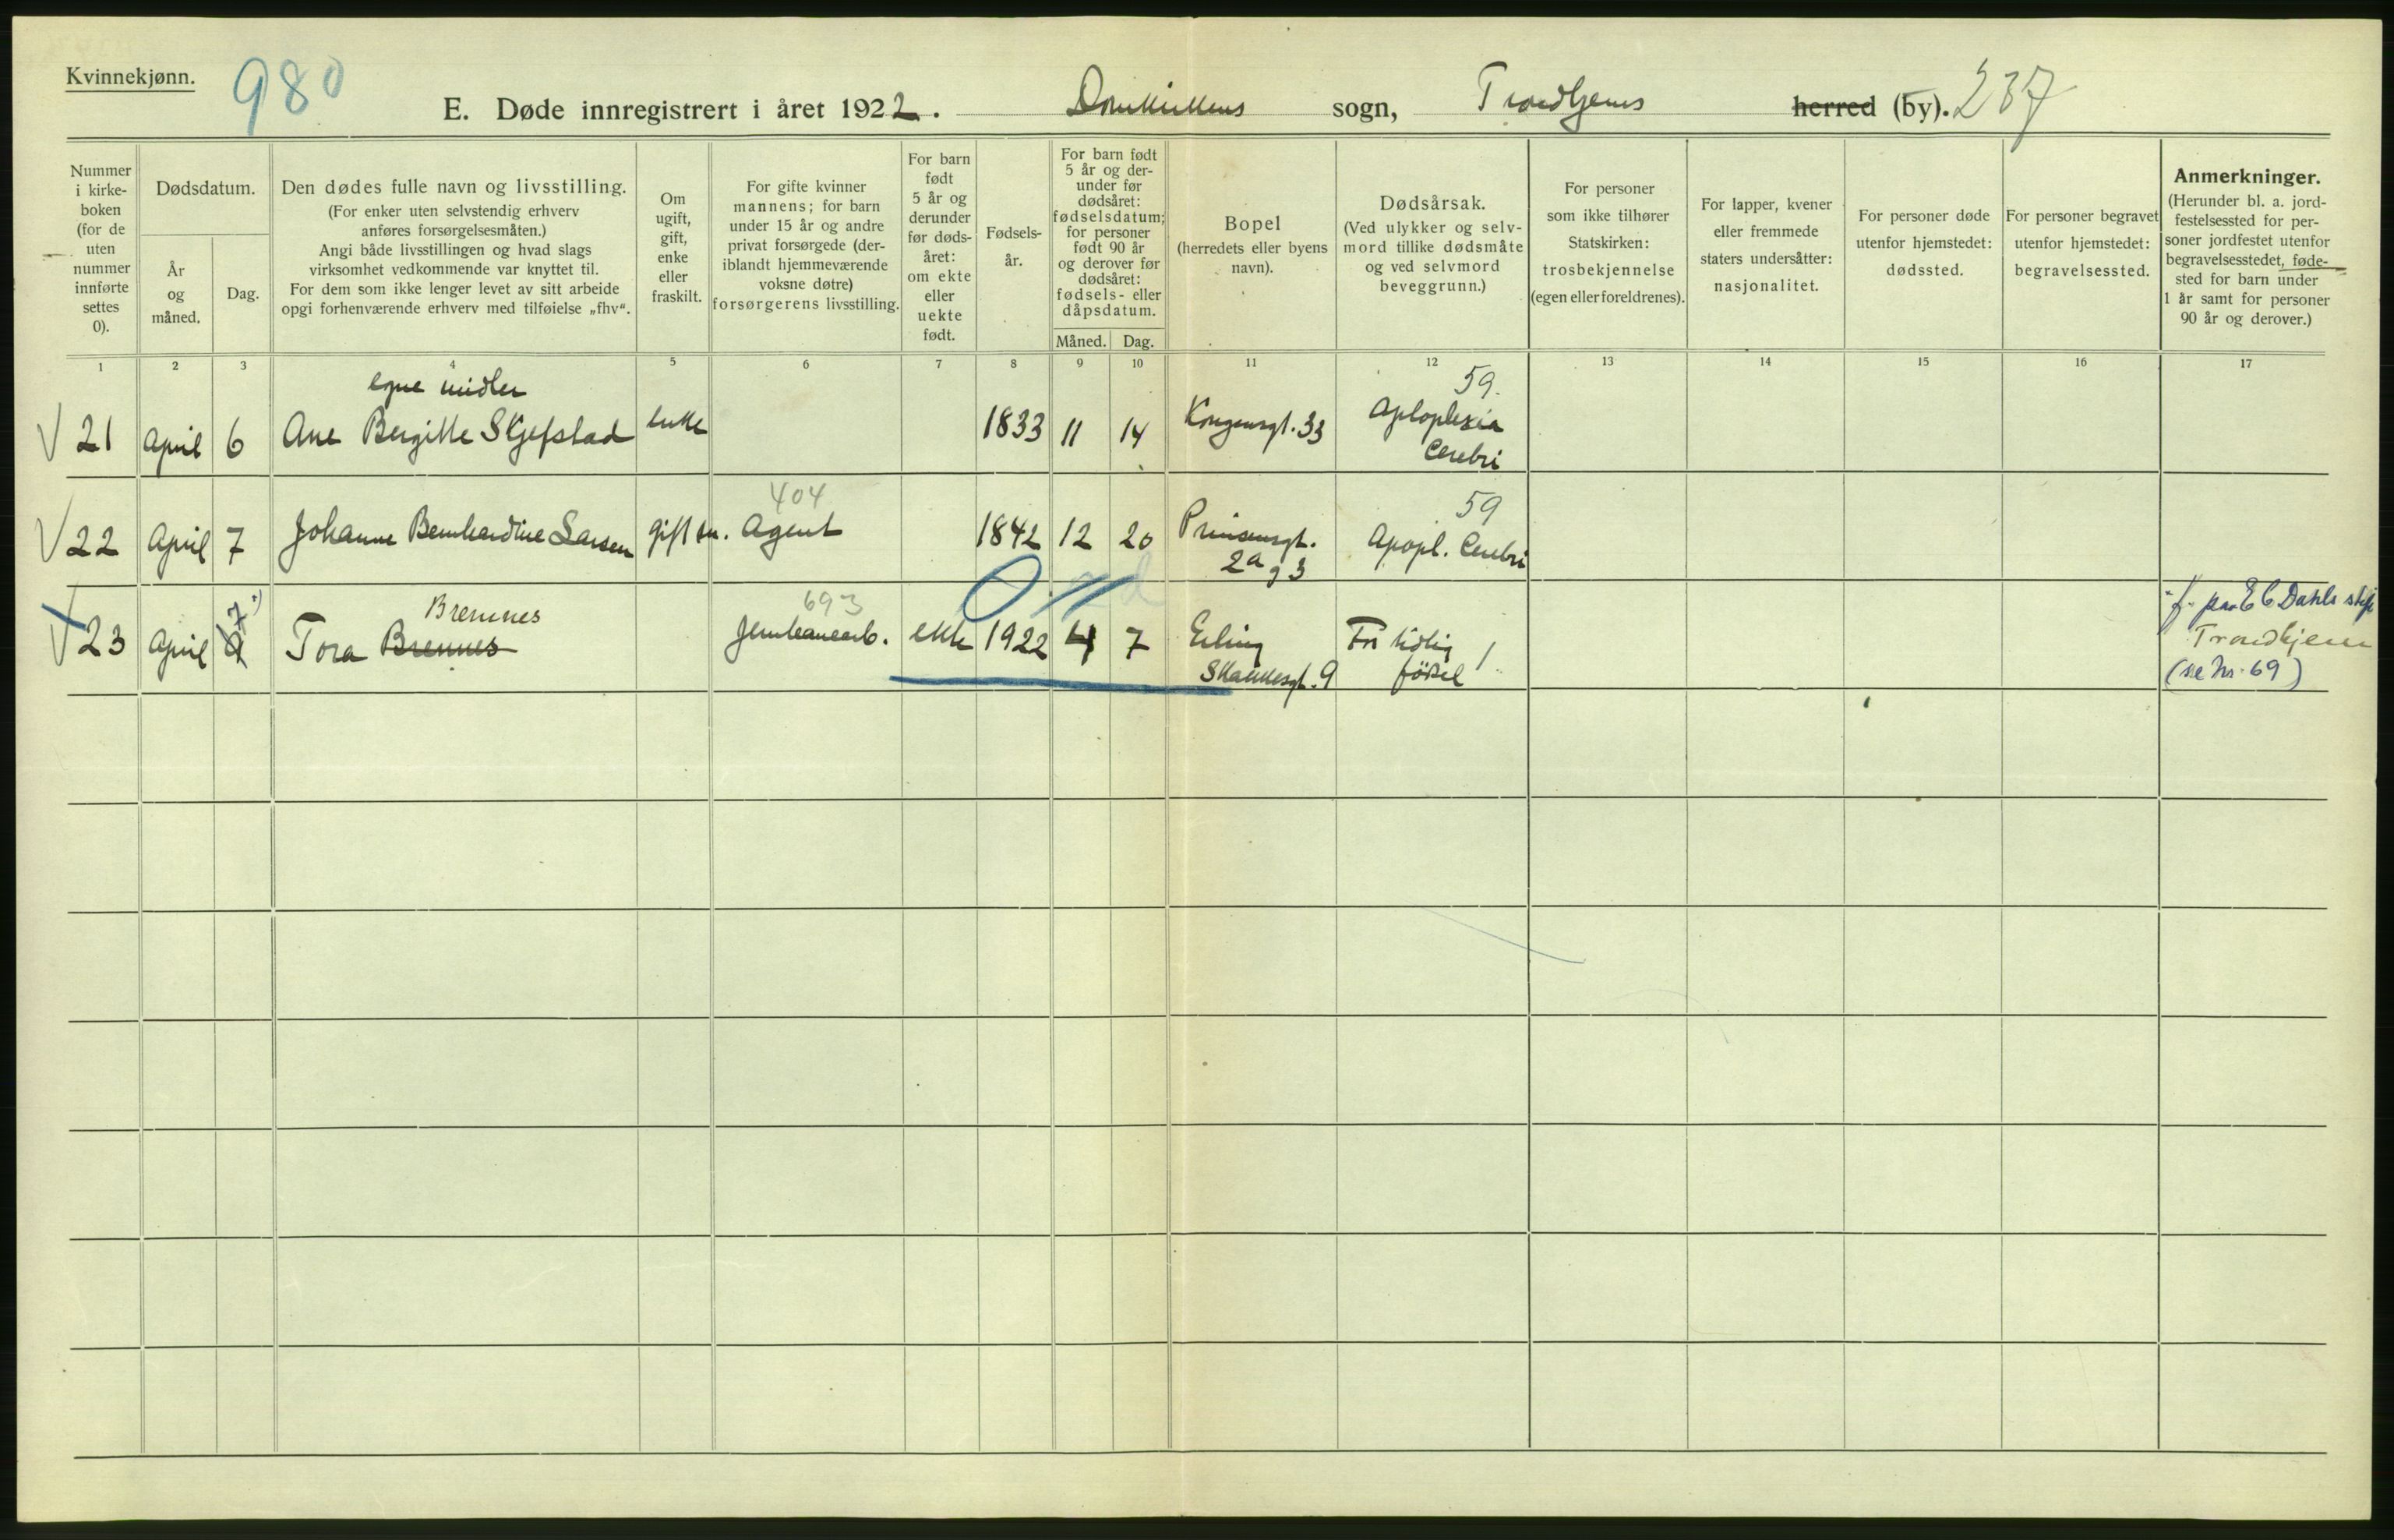 Kvinnekjønn.
980
E. Døde innregistrert i året 1922. Domkirkens sogn, Trondhjems herred (by). 237
Nummer i kirke-boken (for de uten nummer innførte settes 0).
Dødsdatum.
År og måned.
Dag.
Den dødes fulle navn og livsstilling.
(For enker uten selvstendig erhverv
anføres forsørgelsesmåten.)
Angi både livsstillingen og hvad slags
virksomhet vedkommende var knyttet til.
For dem som ikke lenger levet av sitt arbeide
opgi forhenværende erhverv med tilføielse „fhv“.
Om
ugift,
gift,
enke
eller
fraskilt.
For gifte kvinner
mannens; for barn
under 15 år og andre
privat forsørgede (der-
iblandt hjemmeværende
voksne døtre)
forsørgerens livsstilling.
For barn
født
5 år og
derunder
før døds-
året:
om ekte
eller
uekte
født.
Fødsels-
år.
For barn født
5 år og der-
under før
dødsåret:
fødselsdatum;
for personer
født 90 år
og derover før
dødsåret:
fødsels- eller
dåpsdatum.
Måned. Dag.
Bopel
(herredets eller byens
navn).
Dødsårsak.
(Ved ulykker og selv-
mord tillike dødsmåte
og ved selvmord
beveggrunn.)
For personer
som ikke tilhører
Statskirken:
trosbekjennelse
(egen eller foreldrenes).
For lapper, kvener
eller fremmede
staters undersåtter:
nasjonalitet.
For personer døde
utenfor hjemstedet:
dødssted.
For personer begravet
utenfor hjemstedet:
begravelsessted.
Anmerkninger.
(Herunder bl. a. jord-
festelsessted for per-
soner jordfestet utenfor
begravelsesstedet, føde-
sted for barn under
1 år samt for personer
90 år og derover.)
1 2 3 4 5 6 7 8 9 10 11 12 13 14 15 16 17
egne midler 59.
21 April 6 Ane Bergitte Skjefstad enke 1833 11 14 Kongensgt. 33 Aploplexia
Cerebri
404 59
22 April 7 Johanne Bernhardine Larsen gift Agent 1842 12 20 Prinsensgt. Apopl. Cerebri
2a g 3
Bremnes 693 7
23 April Tora Brennes Jernbanearb. ekte 1922 4 7 Erling For tidlig 1
Skakkesgt. 9 födsel
f. paa E C Dahls stift
Trondhjem
(se nr. 69)